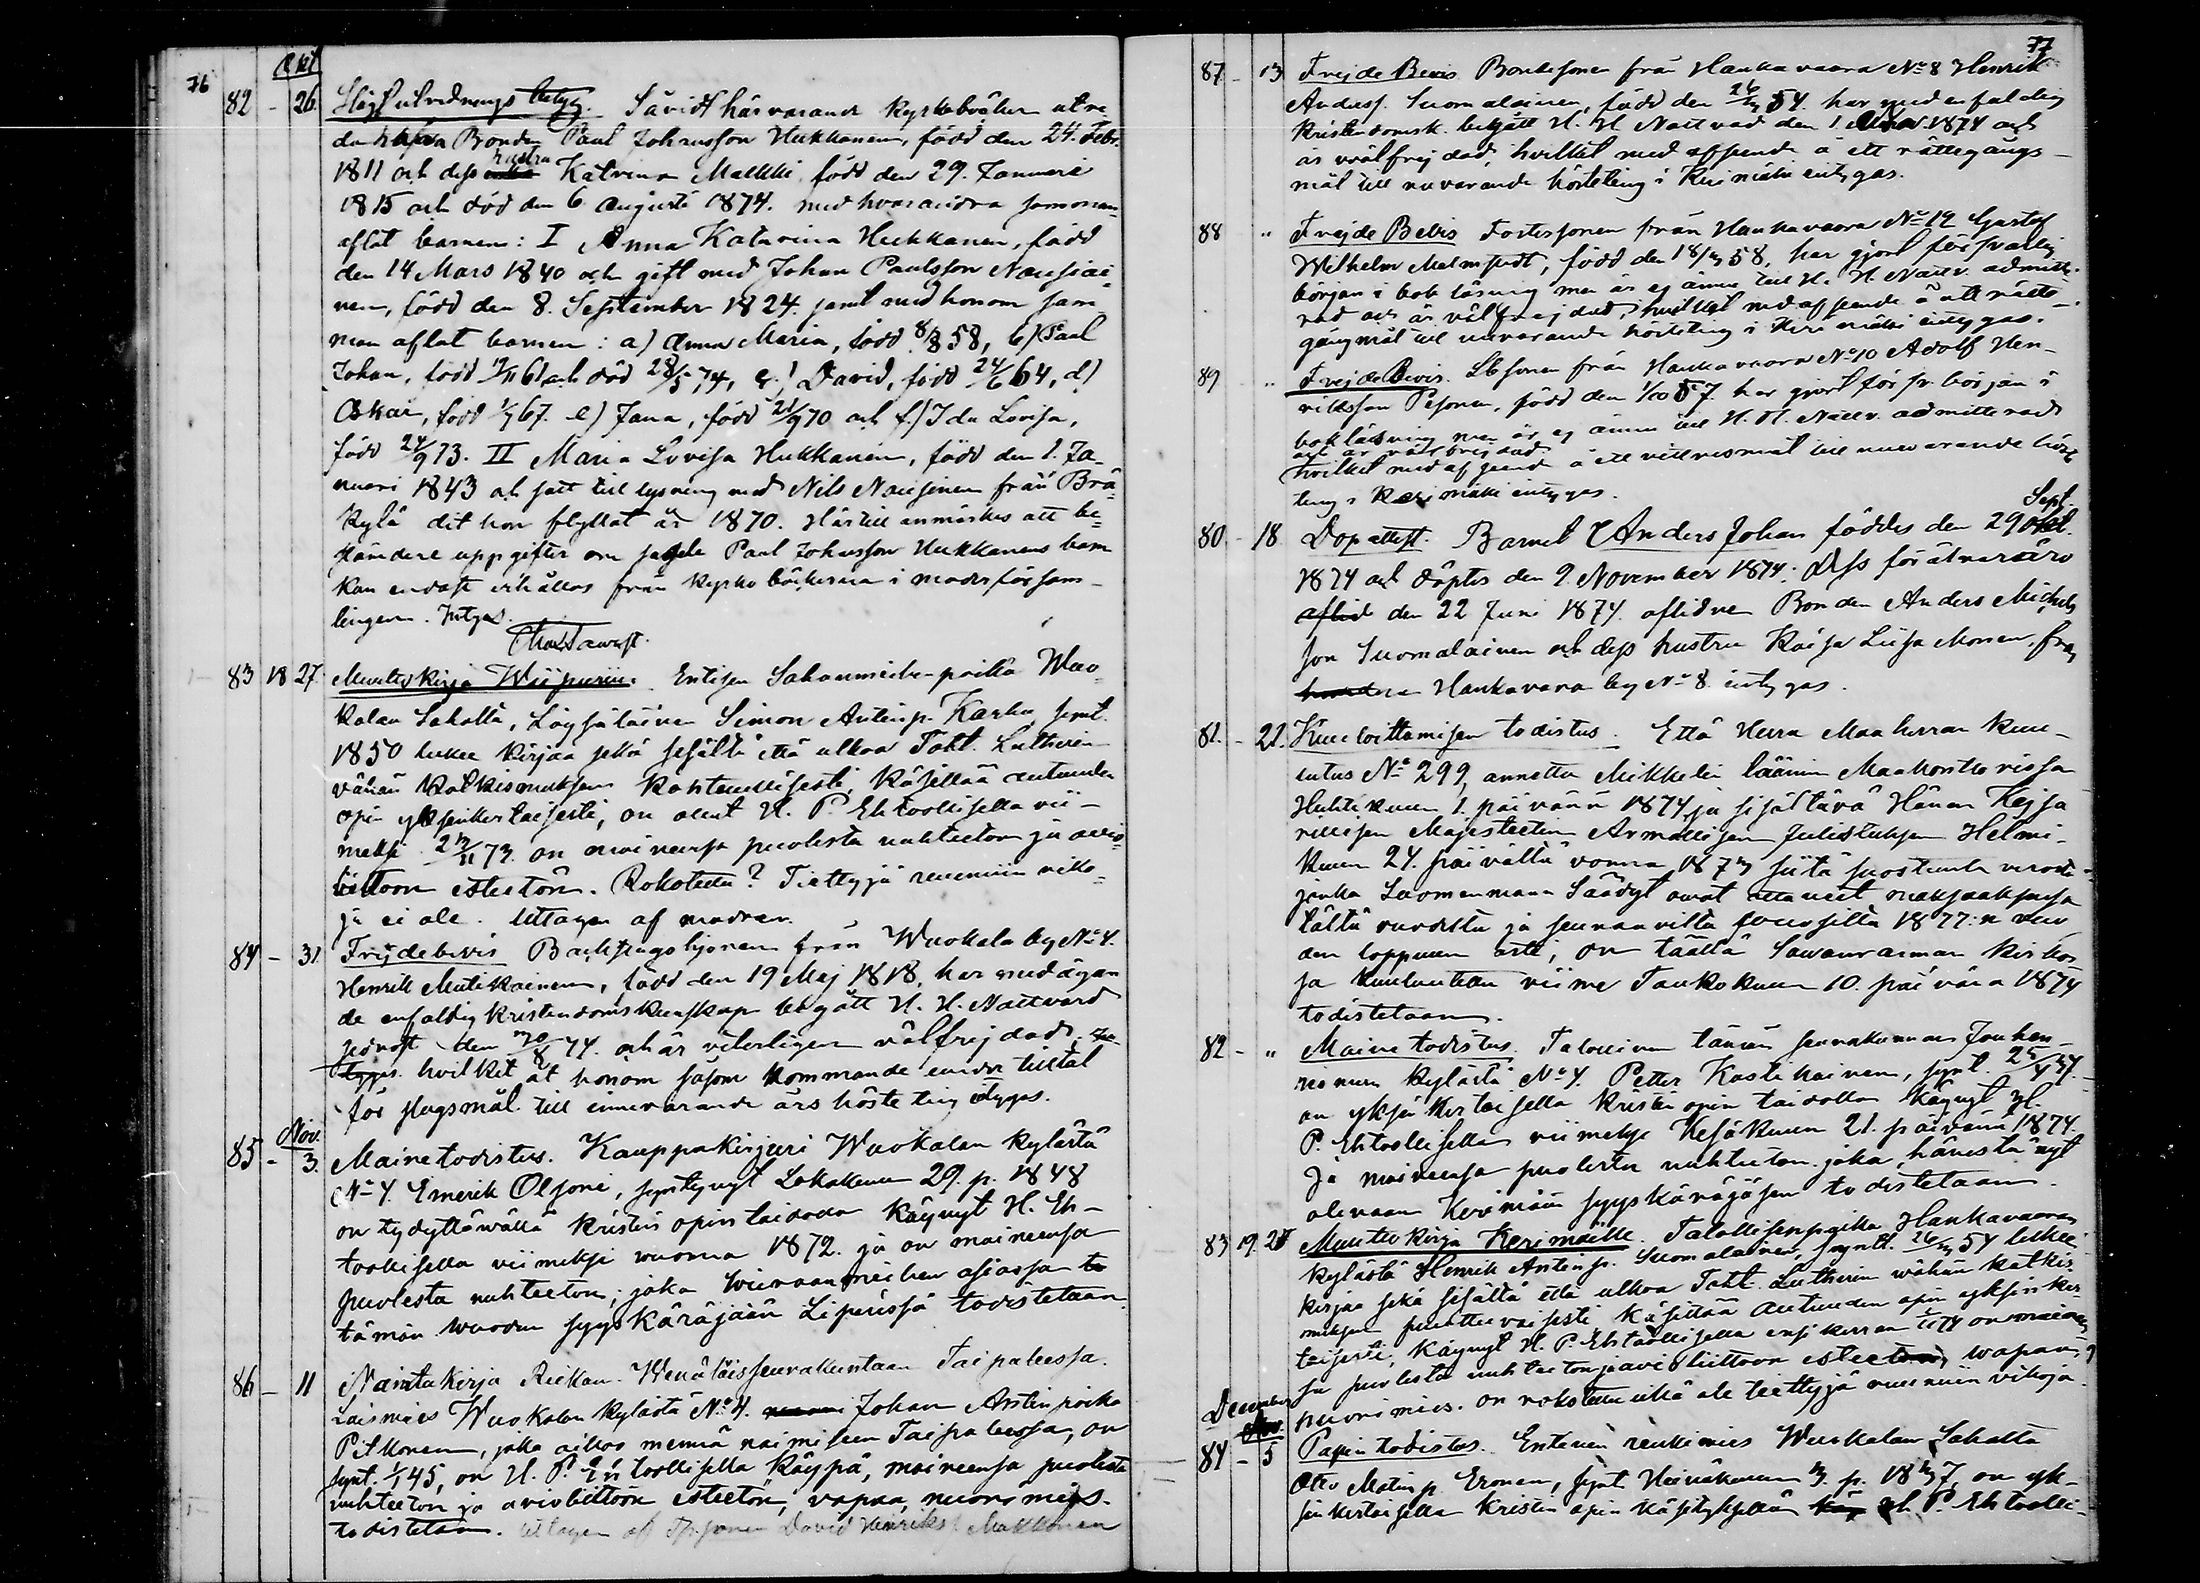 76
Okt.
82 - 26. Slägtutredningsbetyg. Såvidt härvarande kyrkoböcker utre
da hafva Bonden Paul Johansson Hukkanen, född den 24. Febr.
1811 och dess hustru Katrina Malkki född den 29. Januari
1815 och död den 6 Augusti 1874. med hvarandra samman
aflat barnen: I Anna Katarina Hukkanen, född
den 14 Mars 1840 och gift med Johan Paulsson Nousiai
nen, född den 8. September 1824. samt med honom sam
man aflat barnen: a) Anna Maria, född 8/8 58, b) Paul
Johan, född och död 28/5 74, c) David, född 24/6 64, d)
Oskar, född 67. e) Jana, född 21/9 70 och f) Ida Lovisa,
född 24/9 73. II Maria Lovisa Hukkanen, född den 1. Ja-
nuari 1843 och satt till lysning med Nils Nousiainen från Brä
kylä dit hon flyttat år 1870. Härtill anmärkes att be-
stämdare uppgifter om sagde Paul Johansson Hukkanens barn
kan endast erhållas från kyrkoböckerna i moderförsam-
lingen. Intygas.
83 18 27. Muuttokirja Wiipuriin. Entisen Sahanmiehen poika Wuo
kalan Sahalta, Simon Antinp. Karhu, synt.
1850 lukee kirjaa sekä sisältä että ulkoa Toht. Lutherin
vähän Katkismuksen kohtuullisesti, käsittää autuuden
opin yksinkertaisesti, on ollut H. P. Ehtoollisella vii-
meksi 2/11 73. on maineensa puolesta nuhteeton ja avio-
liittoon esteetön. Rokotettu? Tiettyjä ruumiin viko-
ja ei ole. Uttagen af modren.
84 - 31. Frejdebevis Backstugohjonen från Wuokala by No 4.
Henrik Mutikainen, född den 19 Maj 1818, har med ägan
de enfaldig kristendomskunskap begått H. H. Nattvard
senast den 30/8 74. och är veterligen välfrejdad,
hvilket åt honom såsom kommande under tilltal
för slagsmål till innevarande års höste ting intygas.
Nov.
85 - 3. Mainetodistus. Kauppakirjuri Wuokalan kylästä
No 4. Emerik Olsoni, syntynyt Lokakuun 29. p. 1848
on tydyttäwällä kristin opin taidolla käynyt H. Eh-
toollisella viimeksi wuonna 1872. ja on maineensa
puolesta nuhteeton; joka asiassa
tämän wuoden syyskäräjään Liperissä todistetaan.
86 - 11 Naintakirja Reikan. Wenäläisseurakuntaan Taipaleessa.
Loismies Wuokalan kylästä No 4. Johan Antinpoika
Pitkonen, joka aikoo mennä naimiseen Taipaleessa, on
synt. 1/1 45, on H. P. Ehtoollisella käypä, maineensa puolesta
nuhteeton ja avioliittoon esteetön, vapaa, nuori mies.
todistetaan. Uttagen af David Henriks. Makkonen
77
87 - 13 Frejde Bevis Bondesonen från Hankavaara No 8 Henrik
Anderss. Suomalainen, född den 26/3 54. har med enfaldig
kristendomsk. begått H. H. Nattvard den 1. 1874 och
är välfrejdad, hvilket med afseende å ett rättegångs-
mål till nuvarande hösteting i Kerimäki intygas.
88 " Frejde Bevis Fostersonen från Hankavaara No 12 Gustaf
Wilhelm Malmstedt, född den 18/3 58, har gjort försvarlig
början i bok läsning men är ej ännu till H. H. Nattv. admitte-
rad och är välfrejdad, hvilket med afseende å ett rätte-
gångsmål till nuvarande hösteting i Kerimäki intygas.
89 " Frejde Bevis. Sonen från Hankavaara No 10 Adolf Hen-
riksson Pesonen, född den 1/10 57. har gjort försv. början i
bokläsning men är ej ännu till H. H. Nattv. admitterad
och är välfrejdad
hvilket med afseende å ett vittnesmål till nuvarande höste
ting i Kerimäki intygas.
Sept.
80 - 18. Dopattest. Barnet Anders Johan föddes den 29 Okt.
1874 och döptes den 9. November 1874. Dess föräldrar äro
aflid den 22 Juni 1874. aflidne Bonden Anders Michels
son Suomalainen och dess hustru Kaisa Liisa Monen, från
Hankavara by No 8. intygas.
81. - 21. Kuuloittamisen todistus. Että Herra Maaherran kuu-
lutus No 299, annettu Mikkelin läänin Maakonttorissa
Huhtikuun 1. päivänä 1874, ja sisältävä Hänen Keisa
rillisen Majesteetin Armollisen Julistuksen Helmi-
kuun 24. päivältä vonna 1873 siitä suostunta verosta
jonka Suomenmaan Säädyt ovat ottaneet maksaaksensa
tältä vuodelta ja seuraavilta vuosilta 1877:n vuo
den loppuun asti, on täällä Sawonrannan kirkos
sa kuulutettu viime Toukokuun 10. päivänä 1874
todistetaan.
82 - " Maine todistus. Talollinen tämän seurakunnan Jouhen-
nionum kylästä No 4. Petter Kostikainen, synt. 25
on yksinkertaisella kristin opin taidolla käynyt H.
P. Ehtoollisella viimeksi Kesäkuun 21. päivänä 1874.
ja maineensa puolesta nuhteeton joka, hänestä nyt
olevaan Kerimäen syyskäräjäsen todistetaan.
83 19. 28 Muuttokirja Kerimäille. Talollisenpoika Hankavaaran
kylästä Henrik Antinp. Suomalainen, synt. 26/3 54 lukee
kirjaa sekä sisältä että ulkoa Toht. Lutherin wähän katkis
muksen puuttuvaisesti käsittää autuuden opin yksinker
taisesti, käynyt H. P. Ehtoollisella ensi kerran 74 on mainen
sa puolesta nuhteeton ja avioliittoon esteetön, wapaa,
nuori mies. on rokotettu eikä ole tiettyjä ruumiin vikoja.
December
84 - 5 Papin todistus. Entinen renkimies Wuokalan Sahalta
Otto Matinp. Eronen, synt Heinäkuun 3 p. 1837, on yk-
sinkertaisella kristin opin käsityksellä H. P. Ehtoolli-